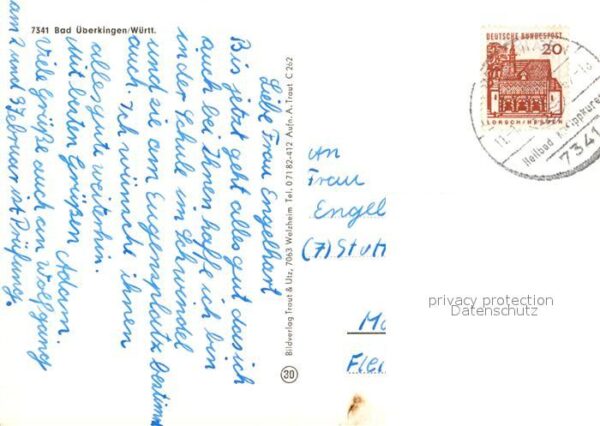 7341 Bad Überkingen/Württ.
Liebe Frau Engelhart
Bis jetzt geht alles gut das ich
auch bei Ihnen hoffe ich bin
in der Schule im Schwindel
und sie am Eugensplatz bestimmt
auch. Ich wünsche ihnen
alles gute weiterhin.
Mit besten Grüßen Adam.
Viele Grüße auch am Wolfgang
am 2 und 3 Februar ist Prüfung.
Bildverlag Traut & Utz, 7063 Welzheim Tel. 07182-412 Aufn. A. Traut C 262
30
An
Frau
Engel
(7) Stutt
Ma
Flei
DEUTSCHE BUNDESPOST
20
LORSCH/HESSEN
Heilbad
7341
privacy protection
Datenschutz